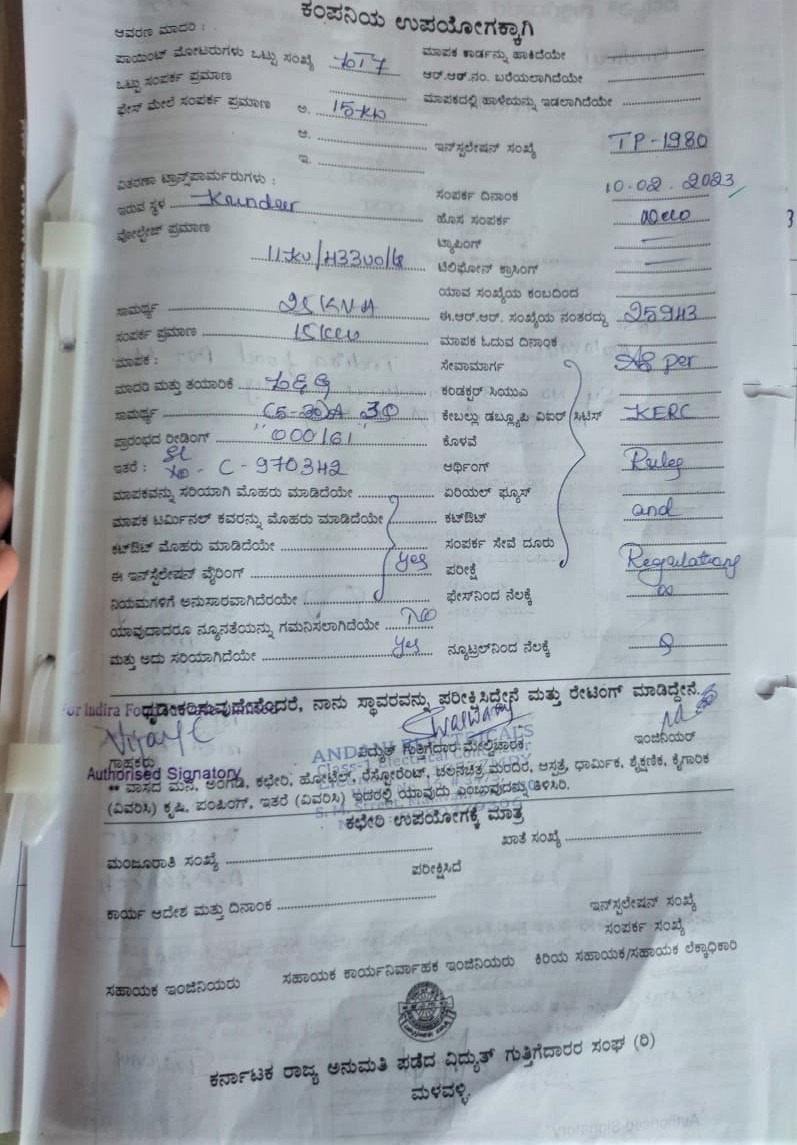 ಕಂಪನಿಯ ಉಪಯೋಗಕ್ಕಾಗಿ
ಆವರಣ ಮಾದರಿ :
ಪಾಯಿಂಟ್ ಮೋಟರುಗಳು ಒಟ್ಟು ಸಂಖ್ಯೆ ಮಾಪಕ ಕಾರ್ಡನ್ನು ಹಾಕಿದೆಯೇ
ಒಟ್ಟು ಸಂಪರ್ಕ ಪ್ರಮಾಣ ಆರ್.ಆರ್.ನಂ. ಬರೆಯಲಾಗಿದೆಯೇ
ಫೇಸ್ ಮೇಲೆ ಸಂಪರ್ಕ ಪ್ರಮಾಣ ಅ. 15 KW ಮಾಪಕದಲ್ಲಿ ಹಾಳೆಯನ್ನು ಇಡಲಾಗಿದೆಯೇ
ಆ. ಇನ್‌ಸ್ಟಲೇಷನ್ ಸಂಖ್ಯೆ TP-1980
ಇ.
ವಿತರಣಾ ಟ್ರಾನ್ಸ್‌ಪಾರ್ಮರುಗಳು : ಸಂಪರ್ಕ ದಿನಾಂಕ 10.02.2023
ಇರುವ ಸ್ಥಳ ಹೊಸ ಸಂಪರ್ಕ
ವೋಲ್ಟೇಜ್ ಪ್ರಮಾಣ ಟ್ಯಾಪಿಂಗ್ —
11KV/433 ಟೆಲಿಫೋನ್ ಕ್ರಾಸಿಂಗ್ —
ಯಾವ ಸಂಖ್ಯೆಯ ಕಂಬದಿಂದ
ಸಾಮರ್ಥ್ಯ 25 KVA ಈ.ಆರ್.ಆರ್. ಸಂಖ್ಯೆಯ ನಂತರದ್ದು 25943
ಸಂಪರ್ಕ ಪ್ರಮಾಣ 15 KW ಮಾಪಕ ಓದುವ ದಿನಾಂಕ
ಮಾಪಕ : ಸೇವಾಮಾರ್ಗ As per
ಮಾದರಿ ಮತ್ತು ತಯಾರಿಕೆ ಕಂಡಕ್ಟರ್ ಸಿಯುಎ
ಸಾಮರ್ಥ್ಯ (5-30)A 3Ø ಕೇಬಲ್ಲು ಡಬ್ಲ್ಯೂಪಿ ವಿಐಆರ್ ಸಿಟಿಎಸ್ KERC
ಪ್ರಾರಂಭದ ರೀಡಿಂಗ್ "000161" ಕೊಳವೆ
ಇತರೆ : Sl No - C-970342 ಆರ್ಥಿಂಗ್ Rules
ಮಾಪಕವನ್ನು ಸರಿಯಾಗಿ ಮೊಹರು ಮಾಡಿದೆಯೇ ಏರಿಯಲ್ ಫ್ಯೂಸ್
ಮಾಪಕ ಟರ್ಮಿನಲ್ ಕವರನ್ನು ಮೊಹರು ಮಾಡಿದೆಯೇ ಕಟ್‌ಔಟ್ and
ಕಟ್‌ಔಟ್ ಮೊಹರು ಮಾಡಿದೆಯೇ ಸಂಪರ್ಕ ಸೇವೆ ದೂರು
ಈ ಇನ್‌ಸ್ಟಲೇಷನ್ ವೈರಿಂಗ್ Yes ಪರೀಕ್ಷೆ Regulations
ನಿಯಮಗಳಿಗೆ ಅನುಸಾರವಾಗಿದೆರಯೇ ಫೇಸ್‌ನಿಂದ ನೆಲಕ್ಕೆ ∞
ಯಾವುದಾದರೂ ನ್ಯೂನತೆಯನ್ನು ಗಮನಿಸಲಾಗಿದೆಯೇ No
ಮತ್ತು ಅದು ಸರಿಯಾಗಿದೆಯೇ Yes ನ್ಯೂಟ್ರಲ್‌ನಿಂದ ನೆಲಕ್ಕೆ
ದೃಢೀಕರಿಸುವುದೇನೆಂದರೆ, ನಾನು ಸ್ಥಾವರವನ್ನು ಪರೀಕ್ಷಿಸಿದ್ದೇನೆ ಮತ್ತು ರೇಟಿಂಗ್ ಮಾಡಿದ್ದೇನೆ.
For Indira
Vijay C
ಗ್ರಾಹಕರು ವಿದ್ಯುತ್ ಗುತ್ತಿಗೆದಾರ ಮೇಲ್ವಿಚಾರಕ ಇಂಜಿನಿಯರ್
Authorised Signatory
Class-1 Electrical Contractor
** ವಾಸದ ಮನೆ, ಅಂಗಡಿ, ಕಛೇರಿ, ಹೋಟೆಲ್, ರೆಸ್ಟೋರೆಂಟ್, ಚಲನಚಿತ್ರ ಮಂದಿರ, ಆಸ್ಪತ್ರೆ, ಧಾರ್ಮಿಕ, ಶೈಕ್ಷಣಿಕ, ಕೈಗಾರಿಕ
(ವಿವರಿಸಿ) ಕೃಷಿ, ಪಂಪಿಂಗ್, ಇತರೆ (ವಿವರಿಸಿ) ಇದರಲ್ಲಿ ಯಾವುದು ಎಂಬುವುದನ್ನು ತಿಳಿಸಿರಿ.
ಕಛೇರಿ ಉಪಯೋಗಕ್ಕೆ ಮಾತ್ರ
ಮಂಜೂರಾತಿ ಸಂಖ್ಯೆ ಖಾತೆ ಸಂಖ್ಯೆ
ಪರೀಕ್ಷಿಸಿದೆ
ಕಾರ್ಯ ಆದೇಶ ಮತ್ತು ದಿನಾಂಕ ಇನ್‌ಸ್ಟಲೇಷನ್ ಸಂಖ್ಯೆ
ಸಂಪರ್ಕ ಸಂಖ್ಯೆ
ಸಹಾಯಕ ಇಂಜಿನಿಯರು ಸಹಾಯಕ ಕಾರ್ಯನಿರ್ವಾಹಕ ಇಂಜಿನಿಯರು ಕಿರಿಯ ಸಹಾಯಕ/ಸಹಾಯಕ ಲೆಕ್ಕಾಧಿಕಾರಿ
ಕರ್ನಾಟಕ ರಾಜ್ಯ ಅನುಮತಿ ಪಡೆದ ವಿದ್ಯುತ್ ಗುತ್ತಿಗೆದಾರರ ಸಂಘ (ರಿ)
ಮಳವಳ್ಳಿ.